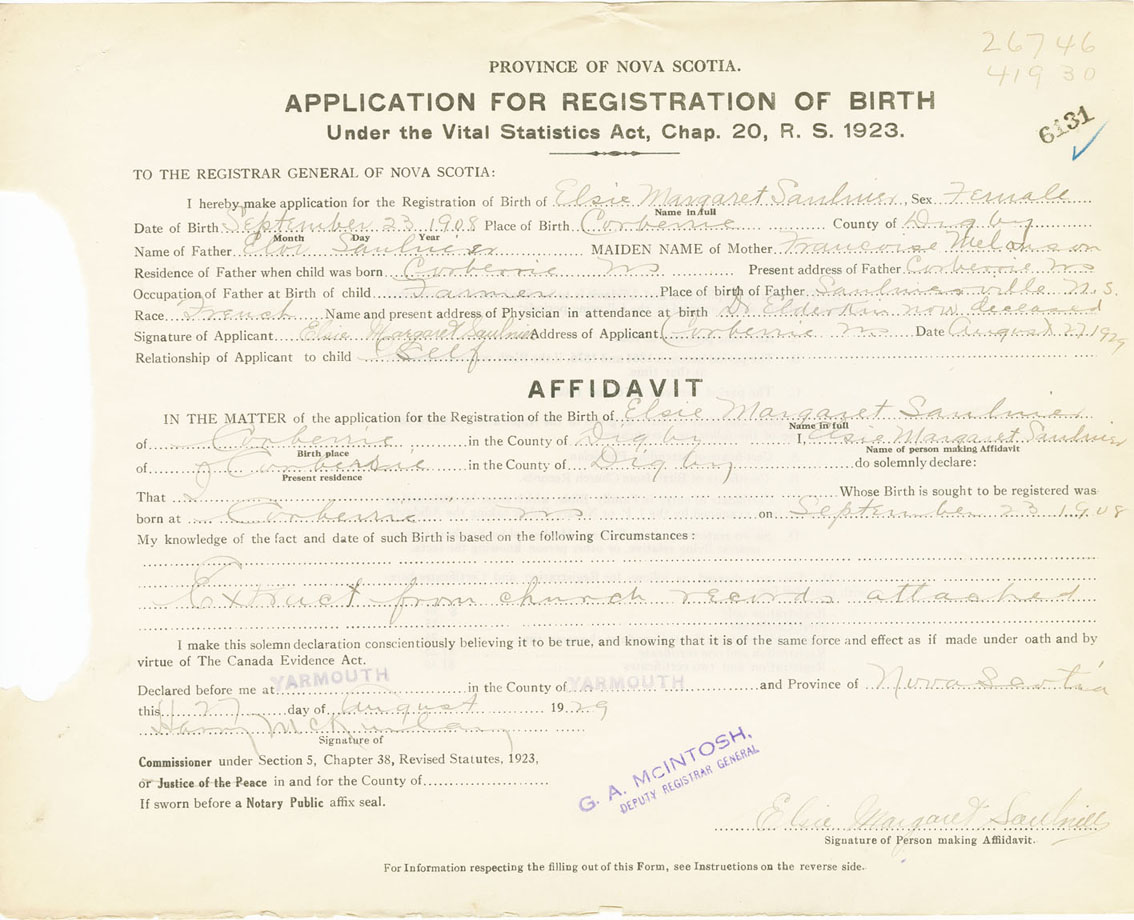 26746
41930
PROVINCE OF NOVA SCOTIA.
APPLICATION FOR REGISTRATION OF BIRTH
Under the Vital Statistics Act, Chap. 20, R. S. 1923.
6131
TO THE REGISTRAR GENERAL OF NOVA SCOTIA:
I hereby make application for the Registration of Birth of Elsie Margaret Saulnier, Sex Female
Name in full
Date of Birth September 23 1908 Place of Birth Corberrie County of Digby
Month Day Year
Name of Father Eloi Saulnier MAIDEN NAME of Mother Francoise Melanson
Residence of Father when child was born Corberrie Ns Present address of Father Corberrie Ns
Occupation of Father at Birth of child Farmer Place of birth of Father Saulniersville N.S.
Race French Name and present address of Physician in attendance at birth Dr Elderkin now deceased
Signature of Applicant Elsie Margaret Saulnier Address of Applicant Corberrie Ns Date August 27 1929
Relationship of Applicant to child Self
AFFIDAVIT
IN THE MATTER of the application for the Registration of the Birth of Elsie Margaret Saulnier
Name in full
of Corberrie in the County of Digby I, Elsie Margaret Saulnier
Birth place Name of person making Affidavit
of Corberrie in the County of Digby do solemnly declare:
Present residence
That I Whose Birth is sought to be registered was
born at Corberrie Ns on September 23 1908
My knowledge of the fact and date of such Birth is based on the following Circumstances:
Extract from church records attached
I make this solemn declaration conscientiously believing it to be true, and knowing that it is of the same force and effect as if made under oath and by
virtue of The Canada Evidence Act.
Declared before me at YARMOUTH in the County of YARMOUTH and Province of Nova Scotia
this 27 day of August 1929
Harry McKinlay
Signature of
Commissioner under Section 5, Chapter 38, Revised Statutes, 1923,
or Justice of the Peace in and for the County of
If sworn before a Notary Public affix seal.
G. A. McINTOSH,
DEPUTY REGISTRAR GENERAL
Elsie Margaret Saulnier
Signature of Person making Affidavit.
For Information respecting the filling out of this Form, see Instructions on the reverse side.